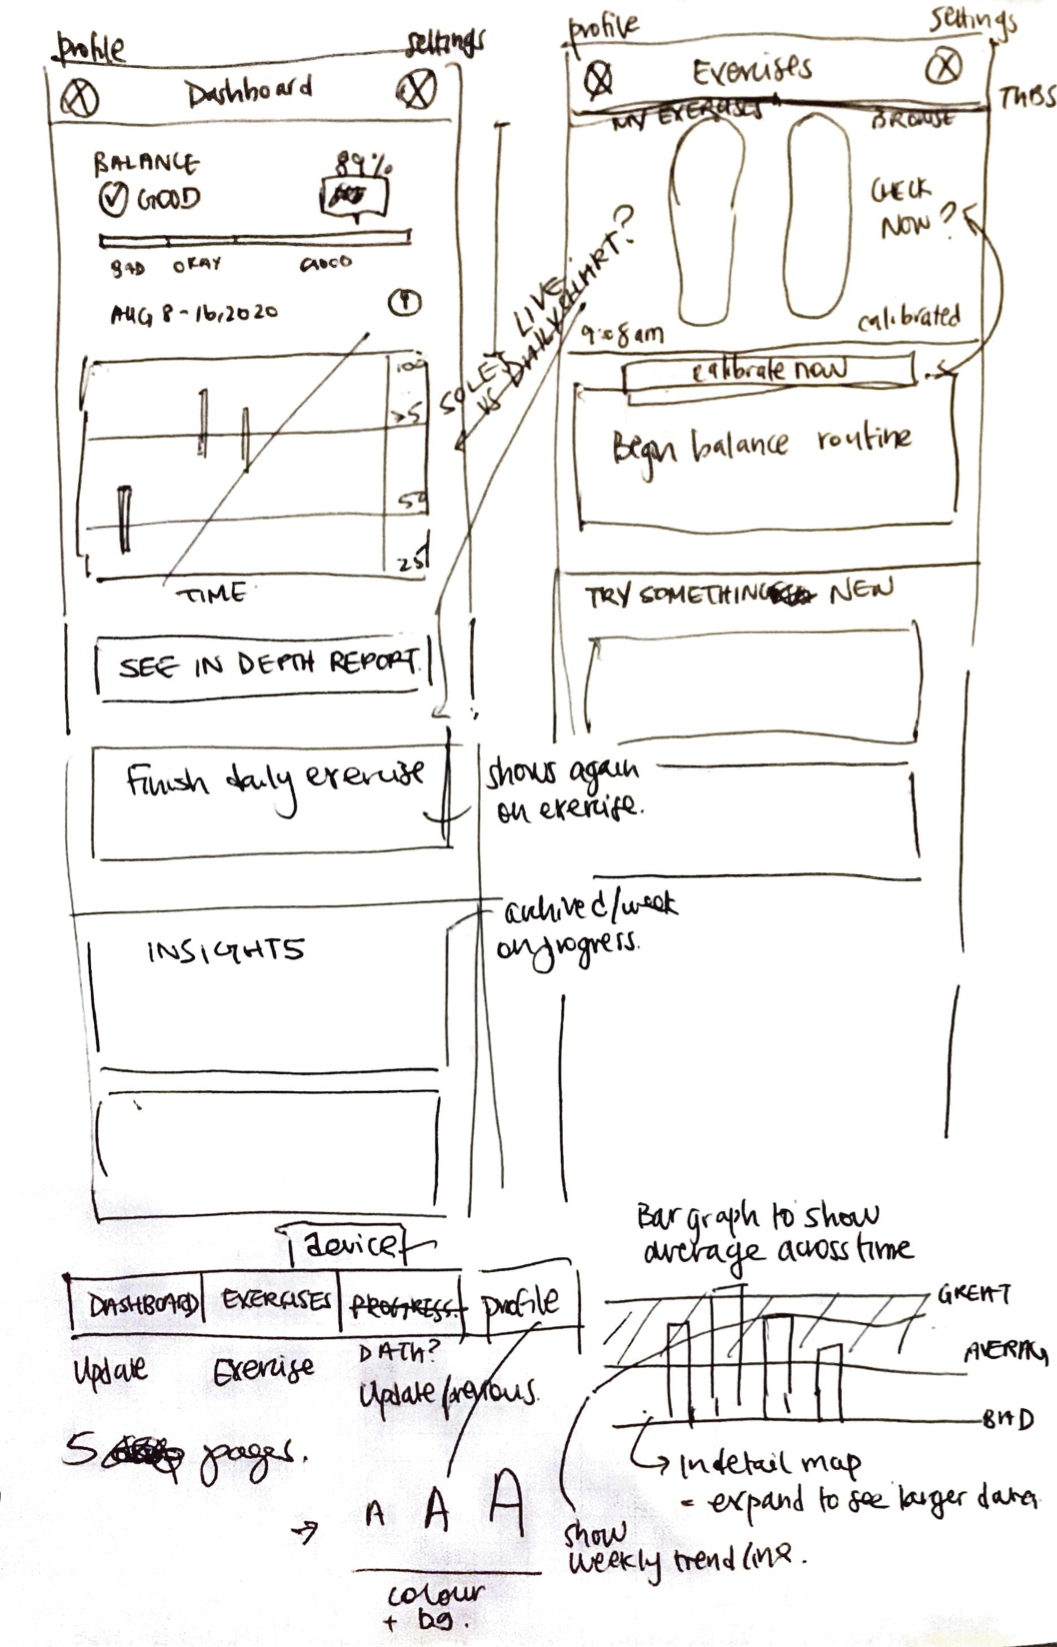 profile
settings
Dashboard
BALANCE
GOOD
89%
BAD OKAY GOOD
AUG 8-16, 2020
100
75
50
25
TIME
SEE IN DEPTH REPORT.
Finish daily exercise
INSIGHTS
SOLE LIVE
VS DAILY CHART?
shows again
on exercise.
archived/week
on progress.
profile
settings
Exercises
TABS
MY EXERCISES
BROWSE
CHECK
NOW?
9:08am
calibrated
calibrate now
Begin balance routine
TRY SOMETHING NEW
device
DASHBOARD EXERCISES PROGRESS profile
Update
Exercise
DATA?
Update/previous.
5 pages.
A A A
colour
+ bg.
Bar graph to show
average across time
GREAT
AVERAG
BAD
In detail map
- expand to see larger data
show
weekly trend line.